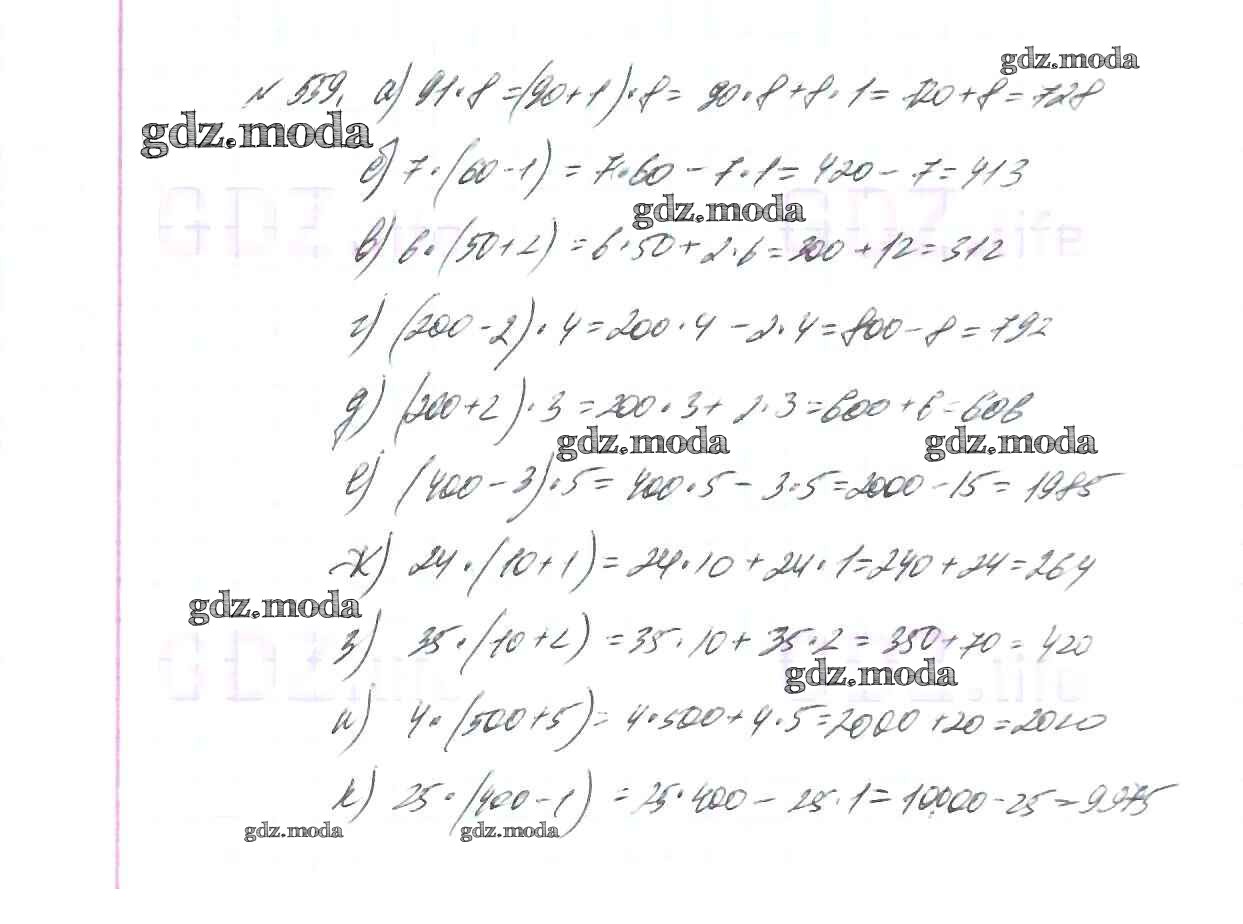 gdz.moda
№ 559. а) 91·8 = (90+1)·8 = 90·8+8·1 = 720+8 = 728
gdz.moda
б) 7·(60-1) = 7·60 - 7·1 = 420 - 7 = 413
GDZ.life GDZ.life
gdz.moda
в) 6·(50+2) = 6·50 + 2·6 = 300 + 12 = 312
г) (200-2)·4 = 200·4 - 2·4 = 800 - 8 = 792
д) (200+2)·3 = 200·3 + 2·3 = 600 + 6 = 606
gdz.moda gdz.moda
е) (400-3)·5 = 400·5 - 3·5 = 2000 - 15 = 1985
ж) 24·(10+1) = 24·10 + 24·1 = 240 + 24 = 264
gdz.moda
з) 35·(10+2) = 35·10 + 35·2 = 350 + 70 = 420
GDZ.life GDZ.life
gdz.moda
и) 4·(500+5) = 4·500 + 4·5 = 2000 + 20 = 2020
к) 25·(400-1) = 25·400 - 25·1 = 10000 - 25 = 9975
gdz.moda gdz.moda